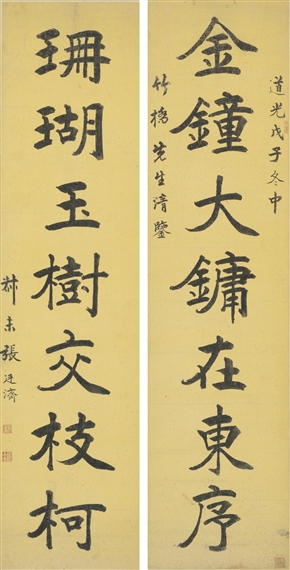 道光戊子冬中
金鐘大鏞在東序
竹橋先生清鑒
珊瑚玉樹交枝柯
尗未張廷濟